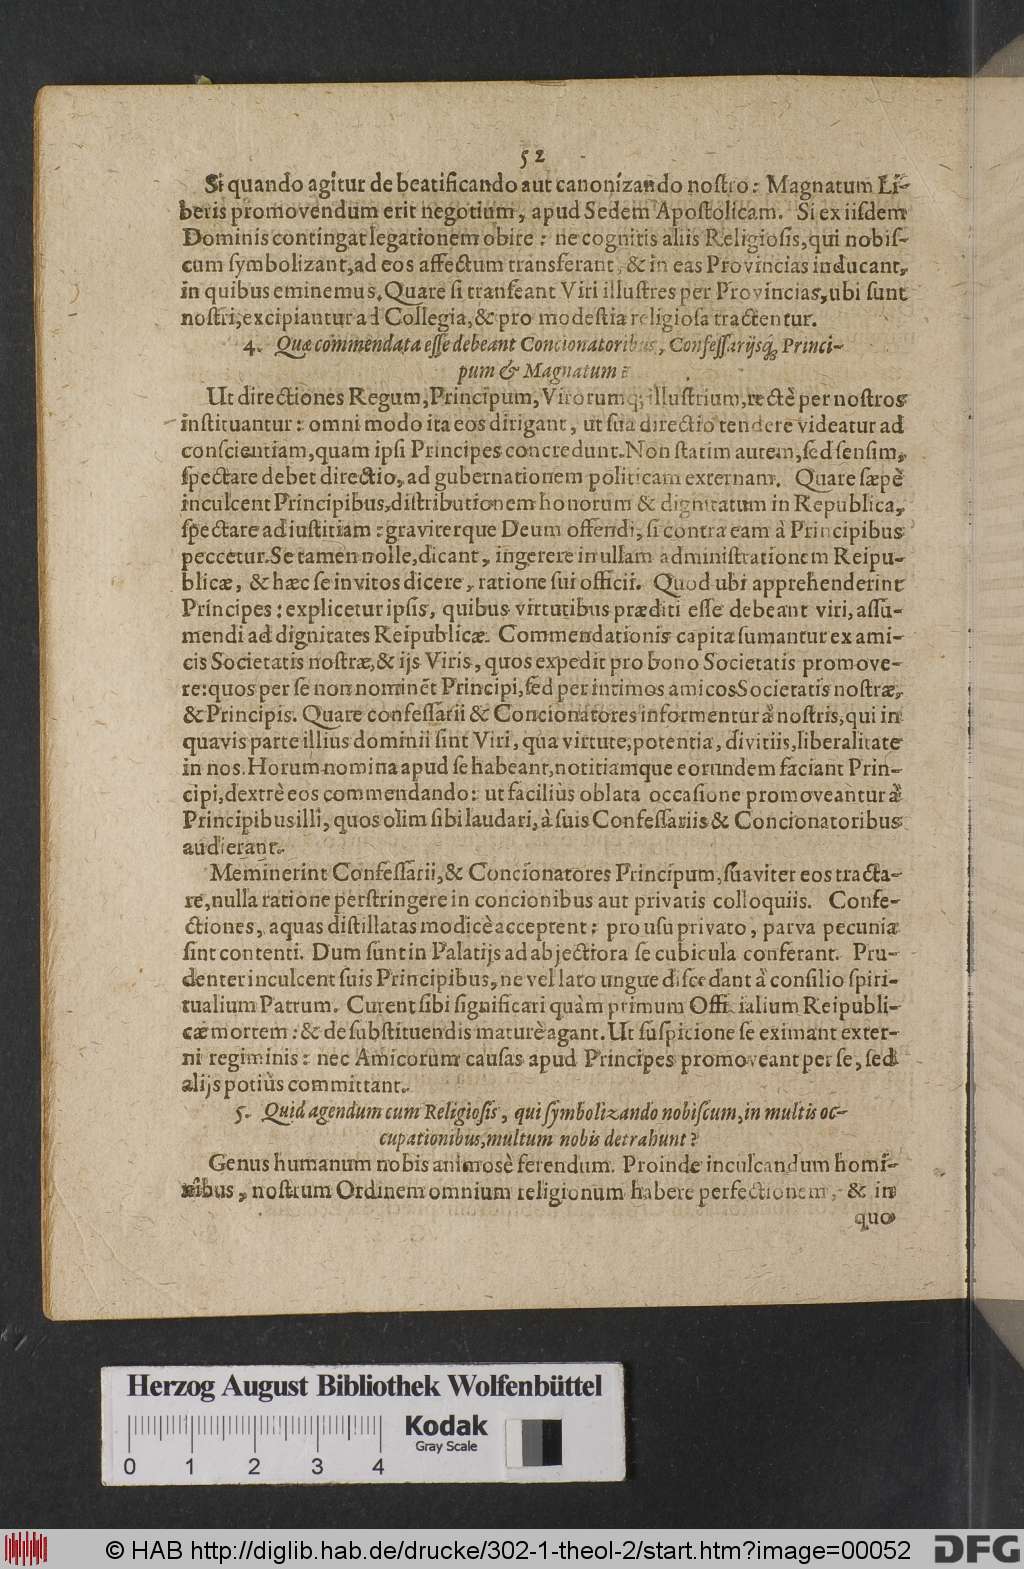 52
Si quando agitur de beatificando aut canonizando nostro: Magnatum Li-
beris promovendum erit negotium, apud Sedem Apostolicam. Si ex iisdem
Dominis contingat legationem obire: ne cognitis aliis Religiosis, qui nobis-
cum symbolizant, ad eos affectum transferant, & in eas Provincias inducant,
in quibus eminemus. Quare si transeant Viri illustres per Provincias, ubi sunt
nostri, excipiantur ad Collegia, & pro modestia religiosa tractentur.
4. Quæ commendata esse debeant Concionatoribus, Confessarijsq; Princi-
pum & Magnatum?
Ut directiones Regum, Principum, Virorumq; illustrium, rectè per nostros
instituantur: omni modo ita eos dirigant, ut sua directio tendere videatur ad
conscientiam, quam ipsi Principes concredunt. Non statim autem, sed sensim,
spectare debet directio, ad gubernationem politicam externam. Quare sæpè
inculcent Principibus, distributionem honorum & dignitatum in Republica,
spectare ad iustitiam: graviterque Deum offendi, si contra eam à Principibus
peccetur. Se tamen nolle, dicant, ingerere in ullam administrationem Reipu-
blicæ, & hæc se invitos dicere, ratione sui officii. Quod ubi apprehenderint
Principes: explicetur ipsis, quibus virtutibus præditi esse debeant viri, assu-
mendi ad dignitates Reipublicæ. Commendationis capita sumantur ex ami-
cis Societatis nostræ, & ijs Viris, quos expedit pro bono Societatis promove-
re: quos per se non nominẽt Principi, sed per intimos amicos Societatis nostræ,
& Principis. Quare confessarii & Concionatores informentur à nostris, qui in
quavis parte illius dominii sint Viri, qua virtute, potentia, divitiis, liberalitate
in nos. Horum nomina apud se habeant, notitiamque eorundem faciant Prin-
cipi, dextrè eos commendando: ut faciliùs oblata occasione promoveantur à
Principibus illi, quos olim sibi laudari, à suis Confessariis & Concionatoribus
audierant.
Meminerint Confessarii, & Concionatores Principum, suaviter eos tracta-
re, nulla ratione perstringere in concionibus aut privatis colloquiis. Confe-
ctiones, aquas distillatas modicè acceptent: pro usu privato, parva pecunia
sint contenti. Dum sunt in Palatijs ad abjectiora se cubicula conferant. Pru-
denter inculcent suis Principibus, ne vel lato ungue discedant à consilio spiri-
tualium Patrum. Curent sibi significari quàm primum Officialium Reipubli-
cæ mortem: & de substituendis maturè agant. Ut suspicione se eximant exter-
ni regiminis: nec Amicorum causas apud Principes promoveant per se, sed
alijs potiùs committant.
5. Quid agendum cum Religiosis, qui symbolizando nobiscum, in multis oc-
cupationibus, multum nobis detrahunt?
Genus humanum nobis animosè ferendum. Proinde inculcandum homi-
nibus, nostrum Ordinem omnium religionum habere perfectionem, & in
quo
Herzog August Bibliothek Wolfenbüttel
Kodak
Gray Scale
0 1 2 3 4
© HAB http://diglib.hab.de/drucke/302-1-theol-2/start.htm?image=00052
DFG